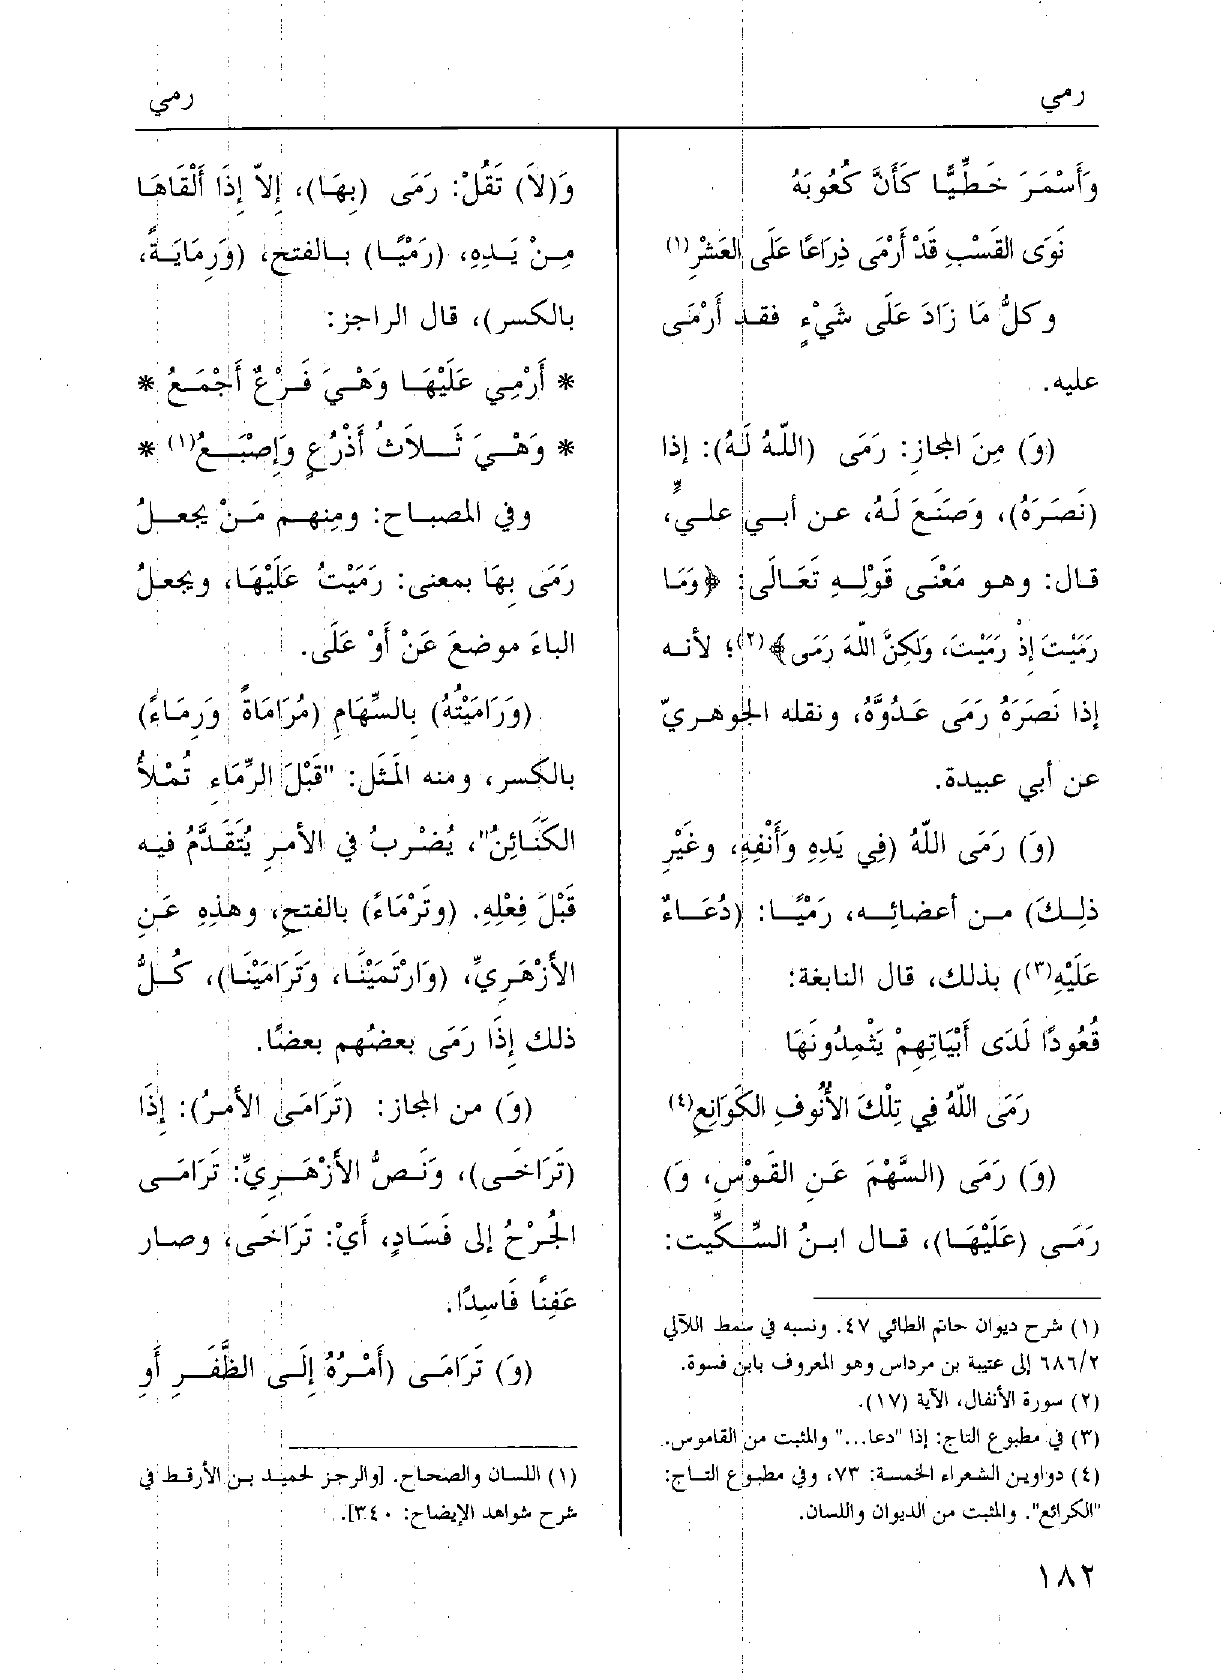 رمي
رمي
وَأَسْمَرَ خَطِّيًّا كَأَنَّ كُعُوبَهُ
نَوَى القَسْبِ قَدْ أَرْمَى ذِرَاعًا عَلَى العَشْرِ(١)
وكلُّ مَا زَادَ عَلَى شَيْءٍ فقد أَرْمَى
عليه.
(وَ) مِنَ المجازِ: رَمَى (اللّهُ لَهُ): إذا
(نَصَرَهُ)، وَصَنَعَ لَهُ، عن أبي عليٍّ،
قال: وهو مَعْنَى قَوْلِهِ تَعَالَى: ﴿وَمَا
رَمَيْتَ إِذْ رَمَيْتَ، وَلكِنَّ اللّهَ رَمَى﴾(٢)؛ لأنه
إذا نَصَرَهُ رَمَى عَدُوَّهُ، ونقله الجوهريّ
عن أبي عبيدة.
(وَ) رَمَى اللّهُ (فِي يَدِهِ وَأَنْفِهِ، وغَيْرِ
ذلِكَ) من أعضائِه، رَمْيًا: (دُعَاءٌ
عَلَيْهِ(٣)) بذلك، قال النابغة:
قُعُودًا لَدَى أَبْيَاتِهِمْ يَثْمِدُونَهَا
رَمَى اللّهُ فِي تِلْكَ الأُنُوفِ الكَوَانِعِ(٤)
(وَ) رَمَى (السَّهْمَ عَنِ القَوْسِ، وَ)
رَمَى (عَلَيْهَا)، قال ابنُ السِّكِّيت:
(١) شرح ديوان حاتم الطائي ٤٧. ونسبه في سمط اللآلي
٦٨٦/٢ إلى عتيبة بن مرداس وهو المعروف بابن فسوة.
(٢) سورة الأنفال، الآية (١٧).
(٣) في مطبوع التاج: إذا "دعا..." والمثبت من القاموس.
(٤) دواوين الشعراء الخمسة: ٧٣، وفي مطبوع التاج:
"الكرائع". والمثبت من الديوان واللسان.
وَ(لاَ) تَقُلْ: رَمَى (بِهَا)، إلاّ إِذَا أَلْقَاهَا
مِنْ يَدِهِ، (رَمْيًا) بالفتح، (وَرِمَايَةً،
بالكسر)، قال الراجز:
* أَرْمِي عَلَيْهَا وَهْيَ فَرْعٌ أَجْمَعُ *
* وَهْيَ ثَلاَثُ أَذْرُعٍ وَإِصْبَعُ(١) *
وفي المصباح: ومِنهم مَنْ يجعلُ
رَمَى بِهَا بمعنى: رَمَيْتُ عَلَيْهَا، ويجعلُ
الباءَ موضعَ عَنْ أَوْ عَلَى.
(وَرَامَيْتُهُ) بِالسِّهَامِ (مُرَامَاةً وَرِمَاءً)
بالكسر، ومنه المَثَل: "قَبْلَ الرِّمَاءِ تُمْلأُ
الكَنَائِنُ"، يُضْرَبُ في الأمرِ يُتَقَدَّمُ فيه
قَبْلَ فِعْلِهِ. (وتَرْمَاءً) بالفتحِ، وهذِهِ عَنِ
الأزْهَرِيِّ، (وَارْتَمَيْنَا، وَتَرَامَيْنَا)، كُلُّ
ذلك إِذَا رَمَى بعضُهم بعضًا.
(وَ) من المجاز: (تَرَامَى الأمرُ): إِذَا
(تَرَاخَى)، وَنَصُّ الأزْهَرِيِّ: تَرَامَى
الجُرْحُ إلى فَسَادٍ، أَيْ: تَرَاخَى، وصار
عَفِنًا فَاسِدًا.
(وَ) تَرَامَى (أَمْرُهُ إِلَى الظَّفَرِ أَوِ
(١) اللسان والصحاح. [والرجز لحميد بن الأرقط في
شرح شواهد الإيضاح: ٣٤٠].
١٨٢